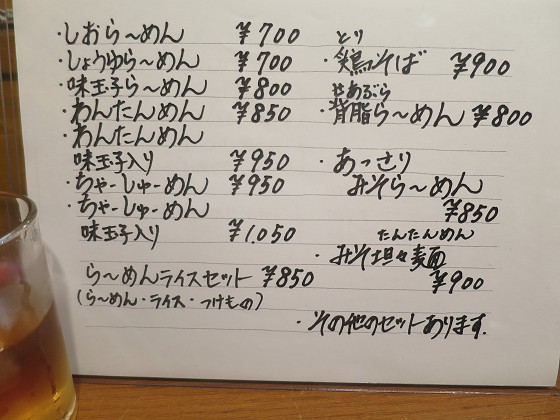 ・しおら〜めん ¥700
・しょうゆら〜めん ¥700
味玉子ら〜めん ¥800
・わんたんめん ¥850
・わんたんめん
味玉子入り ¥950
・ちゃーしゅーめん ¥950
・ちゃーしゅーめん
味玉子入り ¥1,050
ら〜めんライスセット ¥850
(ら〜めん・ライス・つけもの)
とり
・鶏そば ¥900
せあぶら
・背脂ら〜めん ¥800
・あっさり
みそら〜めん
¥850
たんたんめん
・みそ坦々麺
¥900
・その他のセットあります.